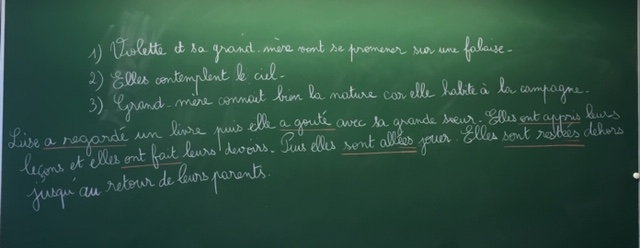 1) Violette et sa grand-mère vont se promener sur une falaise.
2) Elles contemplent le ciel.
3) Grand-mère connaît bien la nature car elle habite à la campagne.
Lise a regardé un livre puis elle a gouté avec sa grande sœur. Elles ont appris leurs
leçons et elles ont fait leurs devoirs. Puis elles sont allées jouer. Elles sont restées dehors
jusqu'au retour de leurs parents.